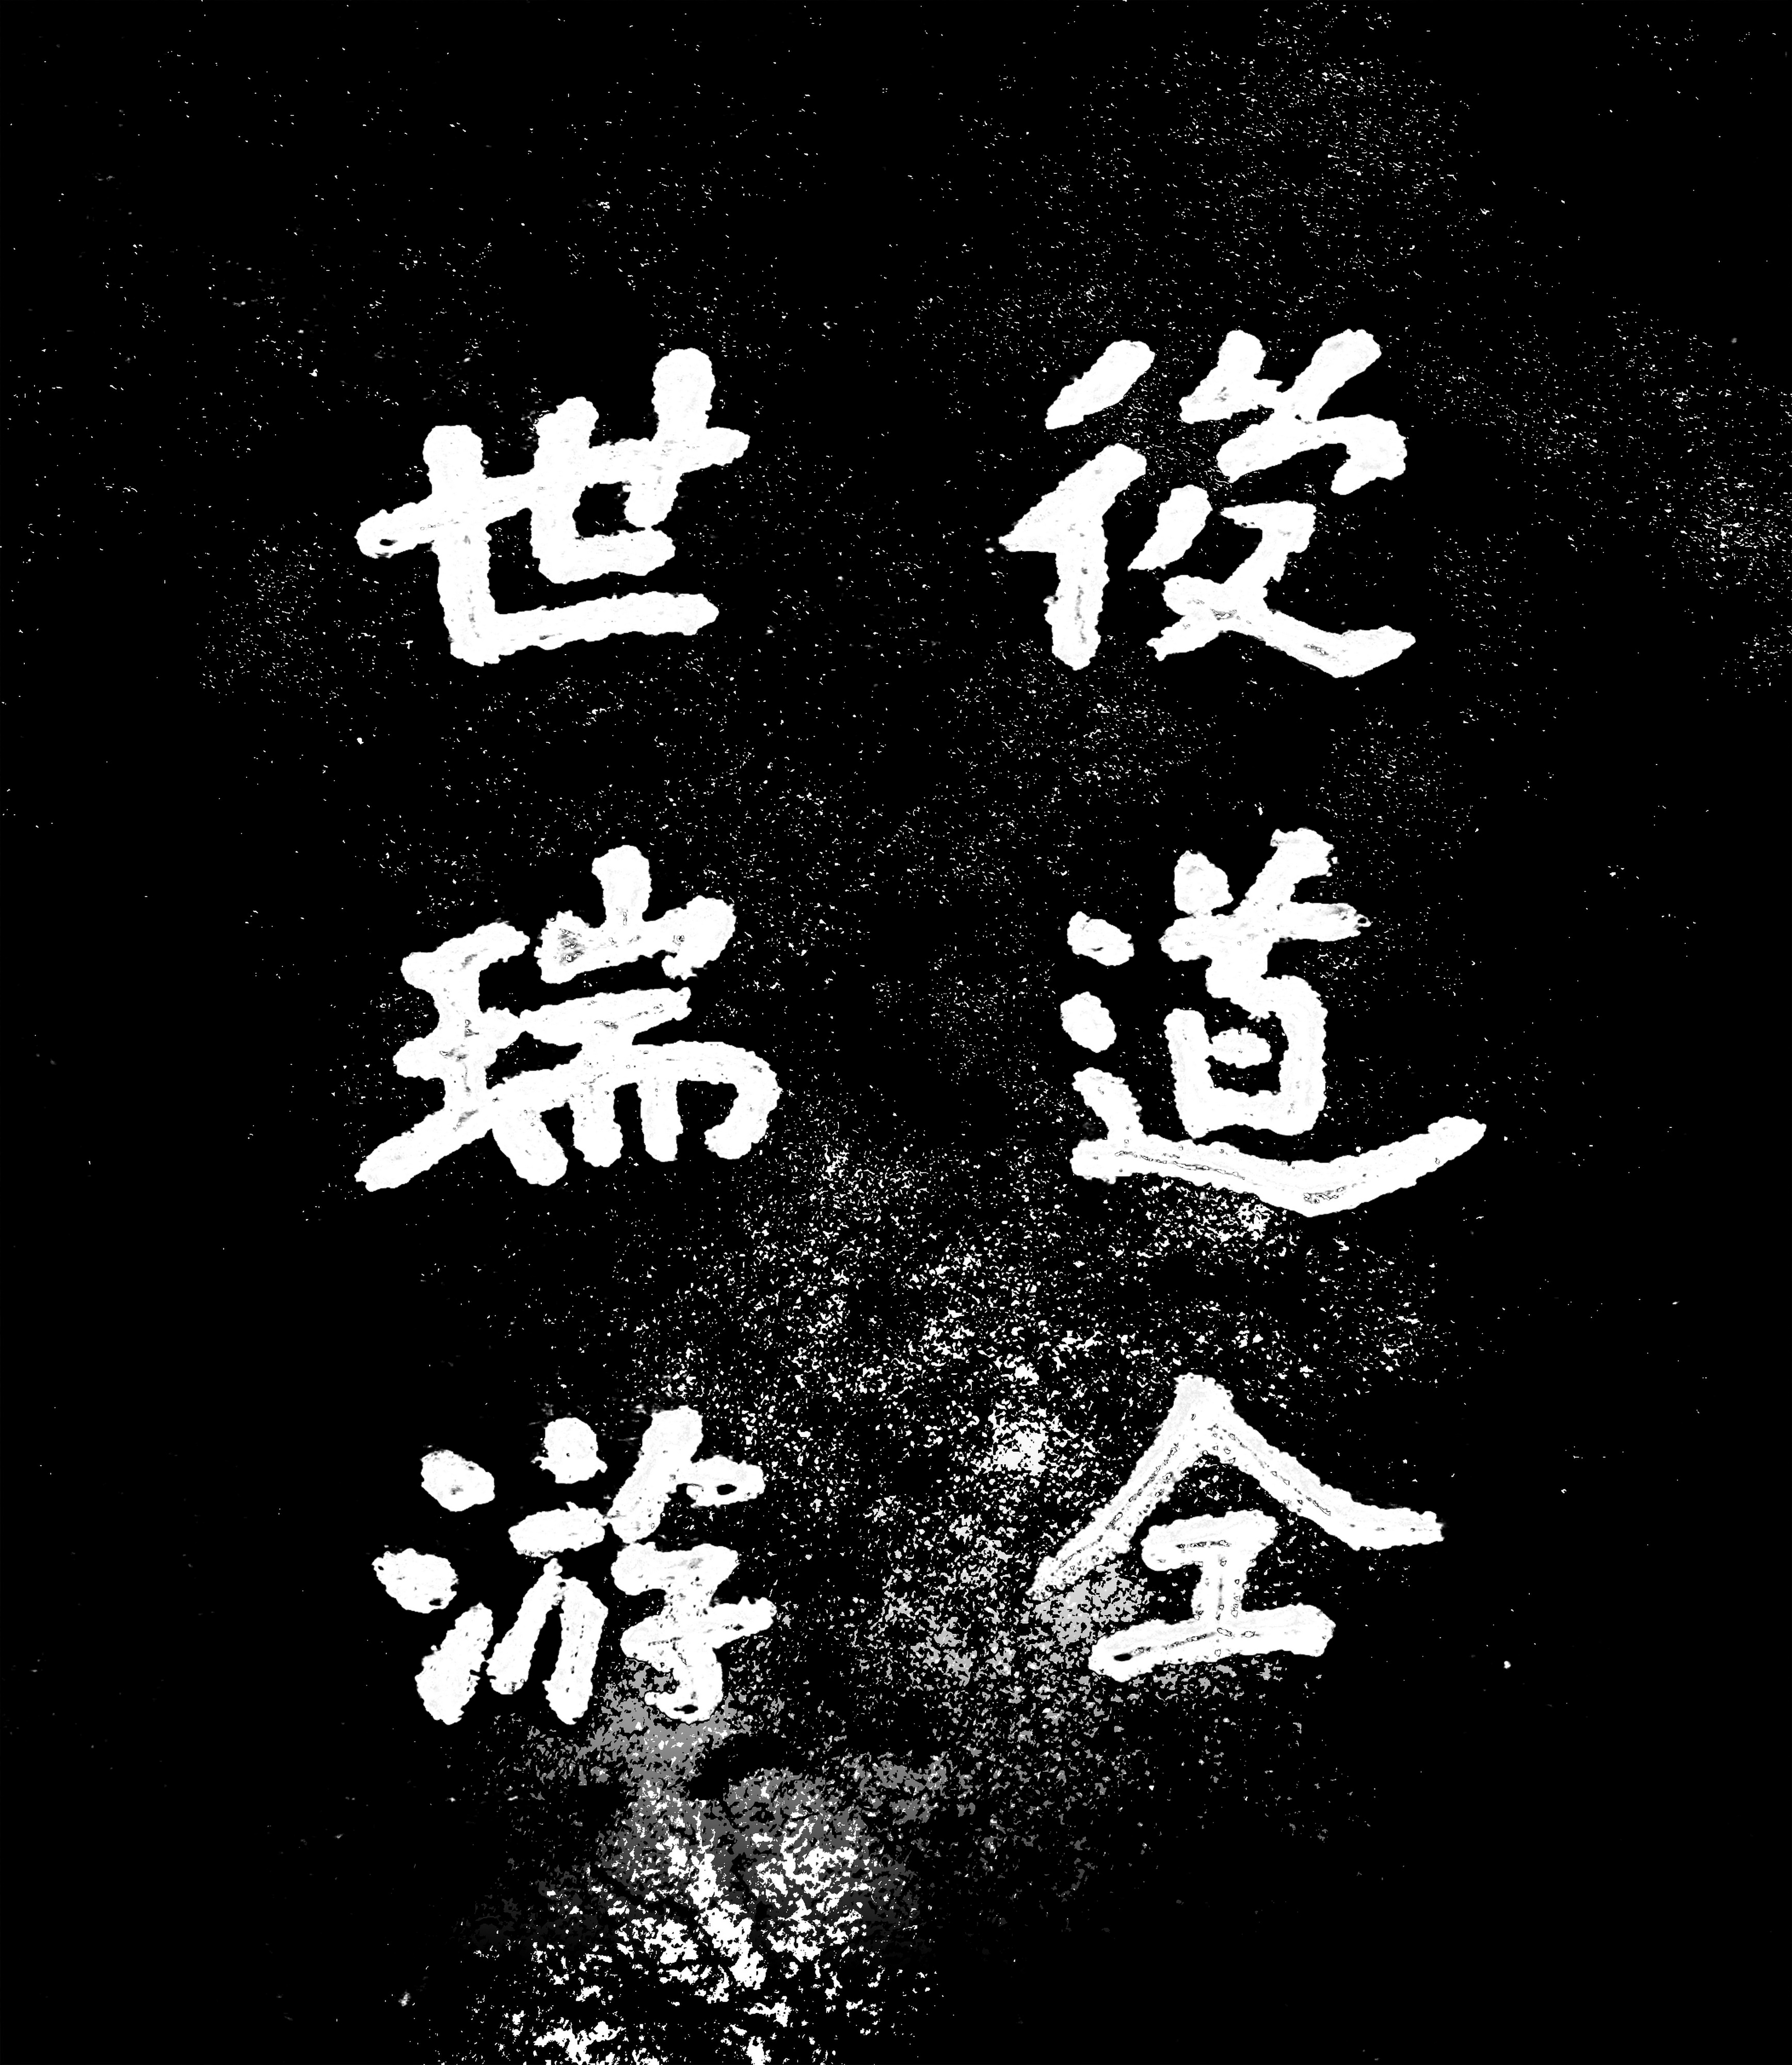 後道仝
世瑞游